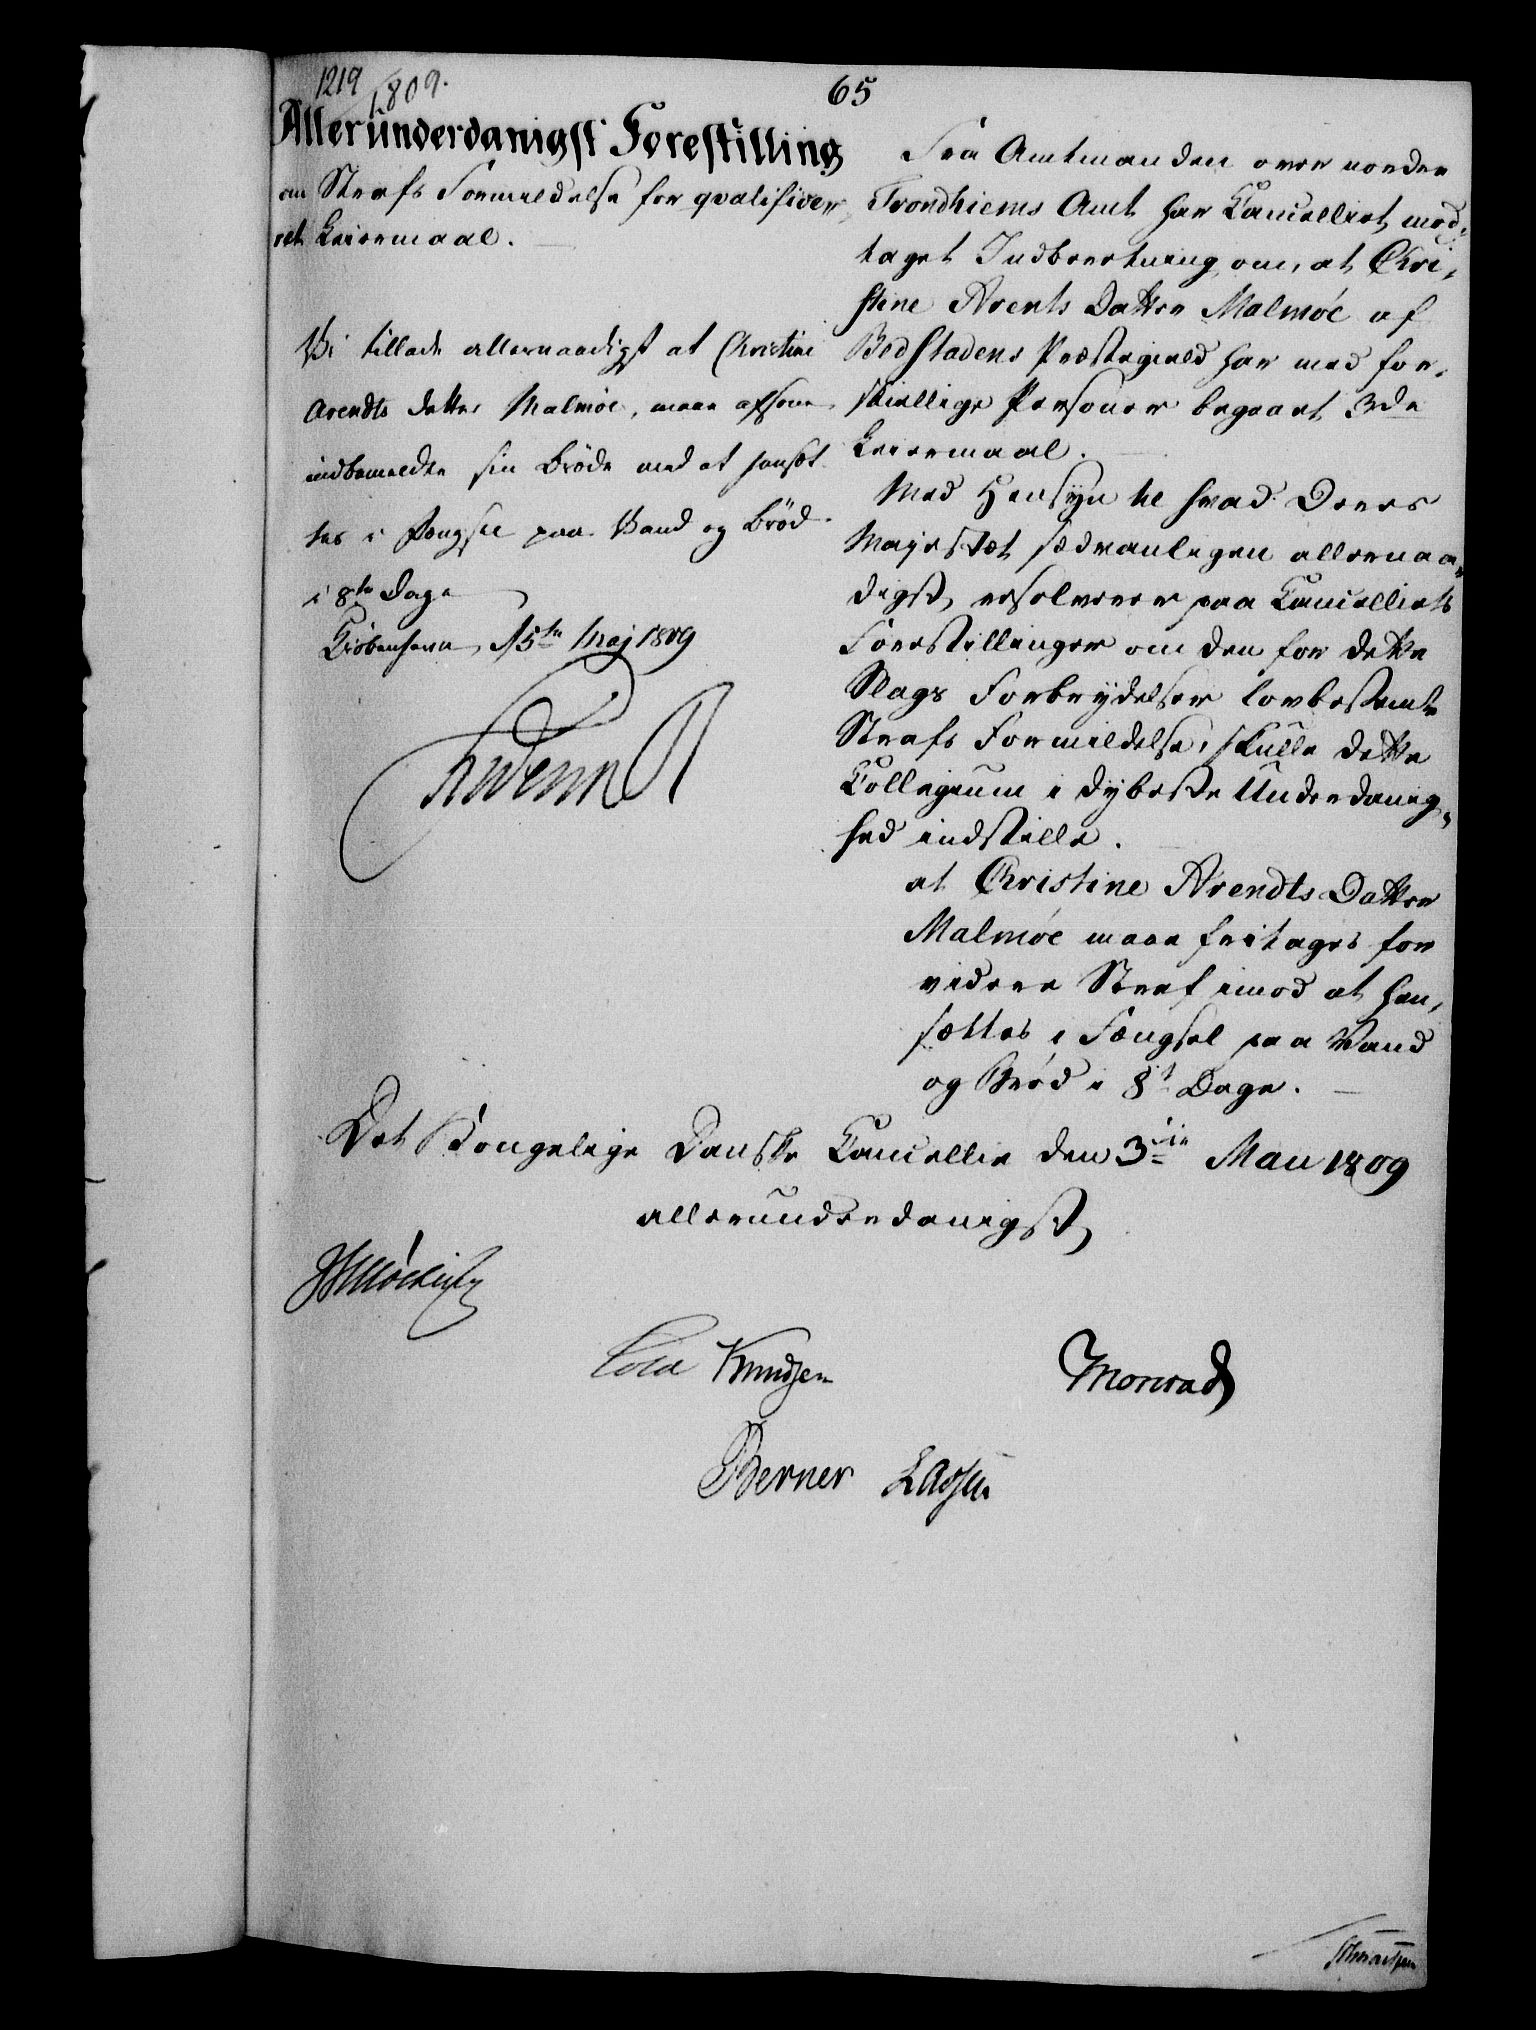 1219
1809.
65
Allerunderdanigst Forestilling
om Strafs Formildelse for qvalifice¬
ret Leiermaal.
Vi tillade allernaadigst at Christine
Arendts datter Malmöe, maae afsone
indbemeldte sin Bröde med at hensæt¬
tes i Fængsel paa Vand og Bröd
i 8te Dage
Kiöbenhavn, 15de Maj 1809
Frederik R
Fra Amtmanden over nordre
Trondhiems Amt har Cancelliet mod¬
taget Indberetning om, at Chri¬
stine Arents Datter Malmöe af
Bedstadens Præstegield har med for¬
skiellige Personer begaaet 3de
Leiermaal.
Med Hensyn til hvad Deres
Majestæt sædvanligen allernaa¬
digst, resolverer paa Cancelliets
Forestillinger om den for dette
Slags Forbrydelser lovbestemte
Strafs Formildelse, skulle dette
Collegium i dybeste Underdanig¬
hed indstille.
at Christine Arendts Datter
Malmöe maae fritages for
videre Straf imod at hen¬
sættes i Fængsel paa Vand
og Bröd i 8te Dage.
Det Kongelige Danske Cancellie den 3die Maii 1809
allerunderdanigst
Cold Knudsen
Monrad
Berner Lassen